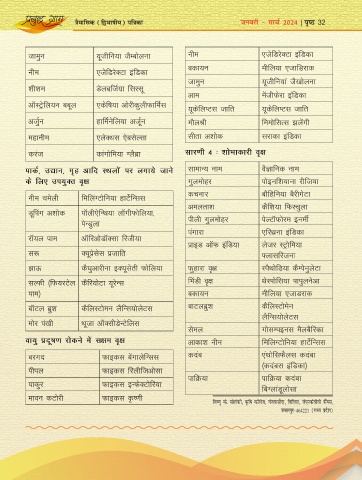 प्रबुद्ध ग्राम त्रैमासिक (द्विभाषीय) पत्रिका जनवरी - मार्च 2024 | पृष्ठ 32
जामुन यूजीनिया जैम्बोलना
नीम एजेडिरेक्टा इंडिका
शीशम डेलबर्जिया सिस्सू
ऑस्ट्रेलियन बबूल एकेषिया ओरीकुलीफार्मिस
अर्जुन हार्मिनेलिया अर्जुन
महानीम एलेंथस ऐक्सेल्सा
करंज कांगोमिया ग्लैब्रा
पार्क, उद्यान, गृह आदि स्थलों पर लगाये जाने
के लिए उपयुक्त वृक्ष
नीम चमेली मिलिंग्टोनिया हार्टेन्सिस
डूपिंग अशोक पोलीऐल्थिया लोंगीफोलिया,
पेन्डुला
रॉयल पाम ऑरिओडॉक्सा रिजीया
सरू क्यूप्रेसेस प्रजाति
झाऊ कैसुआरीना इक्युसेती फोलिया
सल्फी (फिशरटेल कैरियोटा यूरेन्स
पाम)
बॉटल ब्रुश कैलिस्टोमन लैन्सियोलेटस
मोर पंखी थूजा ऑक्सीडेन्टेलिस
वायु प्रदूषण रोकने में सक्षम वृक्ष
बरगद फाइकस बेंगालेन्सिस
पीपल फाइकस रिलीजिओसा
पाकुर फाइकस इन्फेक्टोरिया
माखन कटोरी फाइकस कृष्णी
नीम एजेडिरेक्टा इंडिका
बकायन मीलिया एजाडिराक
जामुन यूजीनिया जैखोलना
आम मेंजीफेरा इंडिका
यूकेलिप्टस जाति यूकेलिप्टस जाति
मौलश्री मिमोसित्स इलेंगी
सीता अशोक सराका इंडिका
सारणी 4 : शोभाकारी वृक्ष
सामान्य नाम वैज्ञानिक नाम
गुलमोहर पोइनशियाना रीजिया
कचनार बौहिनिया बैरीगेटा
अमलताश कैशिया फिस्चुला
पीली गुलमोहर पेल्टोफोरम इनर्मी
पंगारा एरिथ्रना इंडिका
प्राइड ऑफ इंडिया लेजर स्ट्रोमिया
फ्लासरिजना
फुहारा वृक्ष स्पैथोडिया कैम्पेनुलेटा
भिंडी वृक्ष थेस्पेसिया पापुलनेआ
बकायन मीलिया एजाडराक
बाटलब्रुश कैलिस्टोमेन
लैन्सियोलेटस
सेमल गोसम्पइनस मैलबेरिका
आकाश नीम मिलिंग्टोनिया हार्टेन्सिस
कदंब एंथोसिफैलस कदंबा
(कदंबस इंडिका)
पाकिया पाकिया कदंबा
बिग्लांडूलोसा